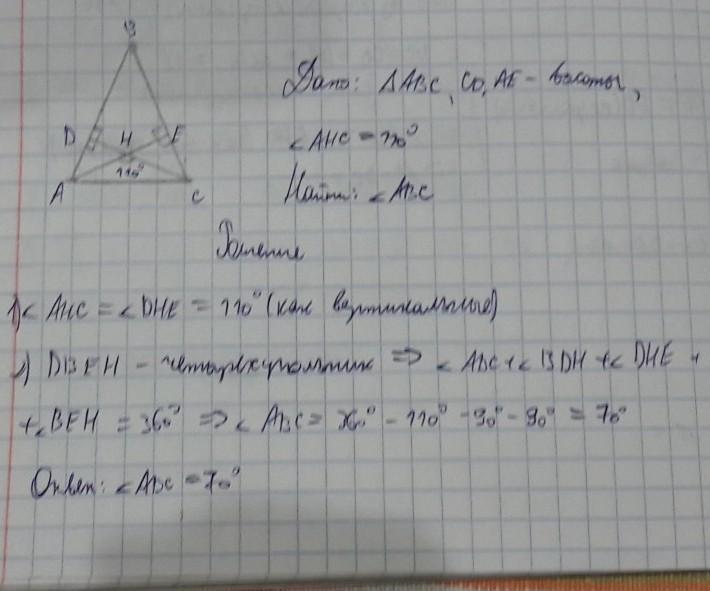 B
Дано: ΔABC, CD, AE - высоты,
D H E
∠AHC = 110°
110°
A C
Найти: ∠ABC
Решение
1) ∠AHC = ∠DHE = 110° (как вертикальные)
2) DBEH - четырехугольник ⇒ ∠ABC + ∠BDH + ∠DHE +
+∠BEH = 360° ⇒ ∠ABC = 360° - 110° - 90° - 90° = 70°
Ответ: ∠ABC = 70°